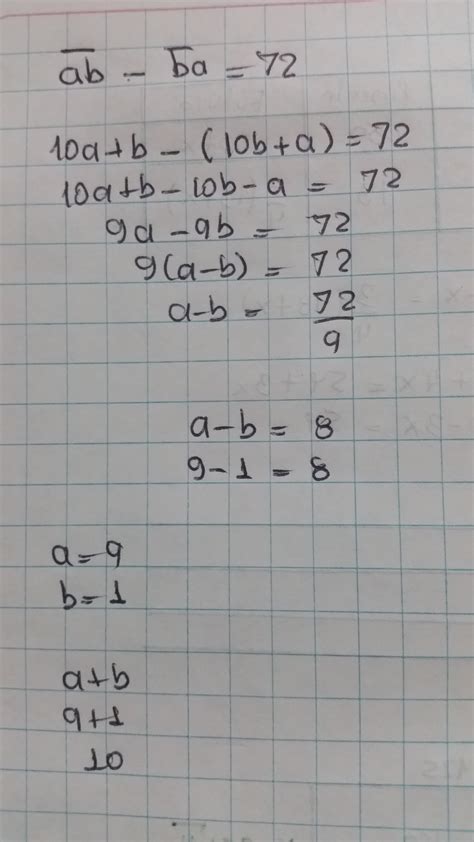 ab - ba = 72
10a+b - (10b+a) = 72
10a+b - 10b - a = 72
9a - 9b = 72
9(a-b) = 72
a-b = 72/9
a-b = 8
9-1 = 8
a=9
b=1
a+b
9+1
10